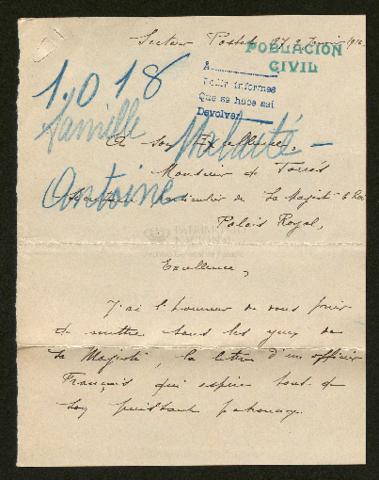 Secteur Postal 27, 2 1916
POBLACION
CIVIL
A
Pedir informes
Que se hace así
Devolver
1.018
Famille
A son Excellence,
Monsieur de Torrés
Antoine
Secrétaire Particulier de Sa Majesté le Roi
Palais Royal,
Excellence,
J'ai l'honneur de vous prier
de mettre sous les yeux de
Sa Majesté, la lettre d'un officier
Français qui espère tout de
son puissant patronage.